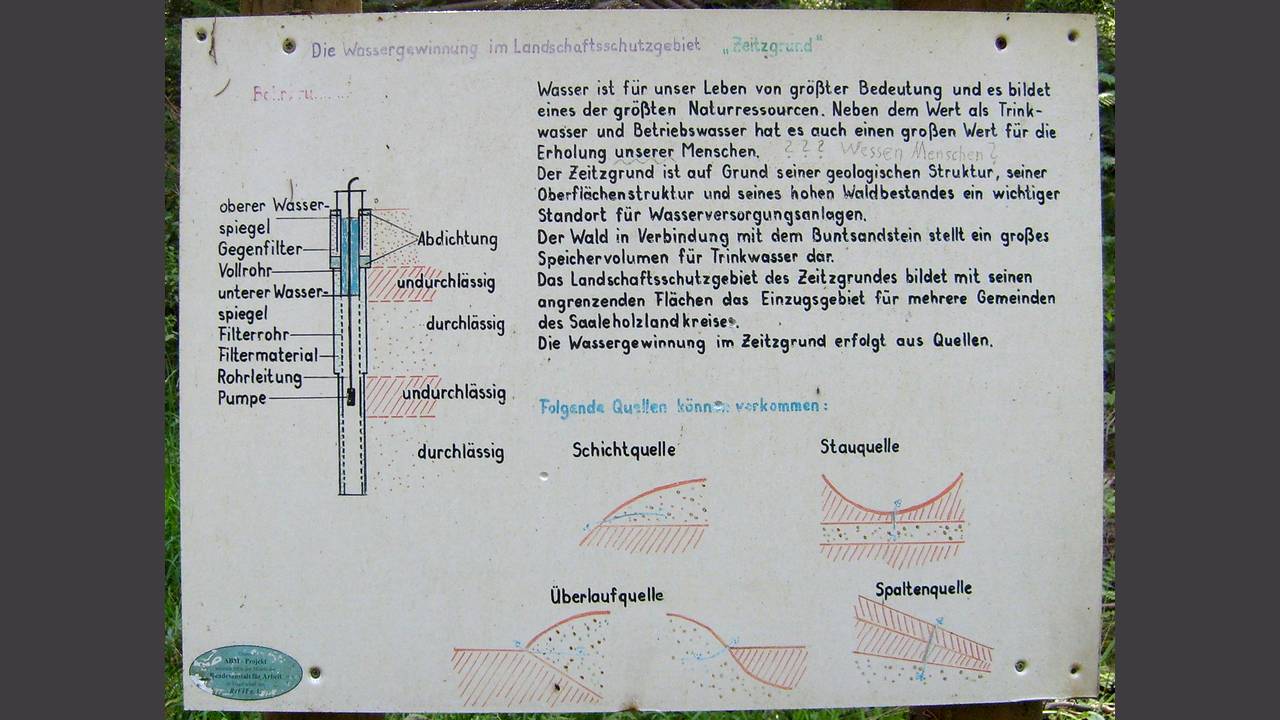 Die Wassergewinnung im Landschaftsschutzgebiet „Zeitzgrund“
Wasser ist für unser Leben von größter Bedeutung und es bildet
eines der größten Naturressourcen. Neben dem Wert als Trink-
wasser und Betriebswasser hat es auch einen großen Wert für die
Erholung unserer Menschen. ??? Wessen Menschen?
Der Zeitzgrund ist auf Grund seiner geologischen Struktur, seiner
Oberflächenstruktur und seines hohen Waldbestandes ein wichtiger
Standort für Wasserversorgungsanlagen.
Der Wald in Verbindung mit dem Buntsandstein stellt ein großes
Speichervolumen für Trinkwasser dar.
Das Landschaftsschutzgebiet des Zeitzgrundes bildet mit seinen
angrenzenden Flächen das Einzugsgebiet für mehrere Gemeinden
des Saaleholzlandkreises.
Die Wassergewinnung im Zeitzgrund erfolgt aus Quellen.
oberer Wasser-
spiegel
Gegenfilter
Vollrohr
unterer Wasser-
spiegel
Filterrohr
Filtermaterial
Rohrleitung
Pumpe
Abdichtung
undurchlässig
durchlässig
undurchlässig
durchlässig
Folgende Quellen können vorkommen:
Schichtquelle
Stauquelle
Überlaufquelle
Spaltenquelle
ABM - Projekt
Bundesanstalt für Arbeit